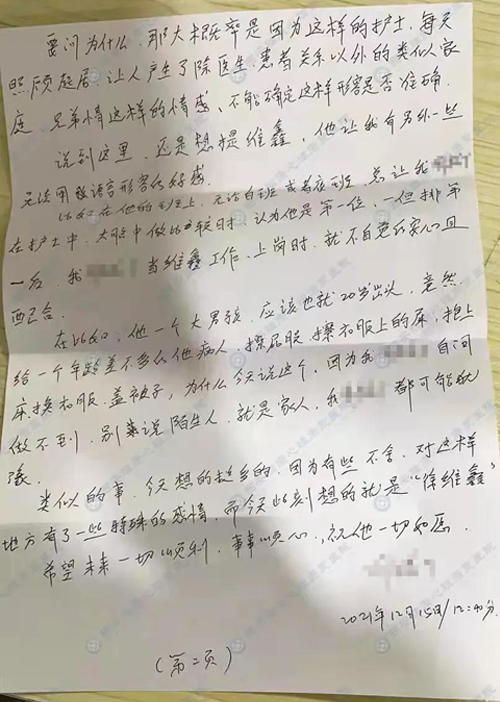 要问为什么,那大概率是因为这样的护士,每天
照顾起居,让人产生了除医生.患者关系以外的类似家
庭,兄弟情这样的情感、不能确定这样形容是否准确.
说到这里,还是想提维鑫,他让我有另外一些
无法用语言形容的好感.
比如在他的班上,无论白班或者夜班,总让我
在护士中,大脑中做比较时,认为他是第一位,一但排第
一后,我 当维鑫工作,上岗时,就不自觉的安心且
配合.
在比如,他一个大男孩,应该也就20岁出头,竟然.
给一个年龄差不多的他病人,擦屁股,擦衣服上的尿,抱上
床换衣服.盖被子,为什么今天说这个,因为我 自问
做不到,别来说陌生人,就是家人,我 都可能犹
豫.
类似的事,今天想的挺多的,因为有些不舍,对这样
地方有了一些特殊的感情,而今此刻想的就是"徐维鑫"
希望未来一切顺利,事事顺心,祝他一切如愿.
2021年12月15日/12:40分.
(第二页)